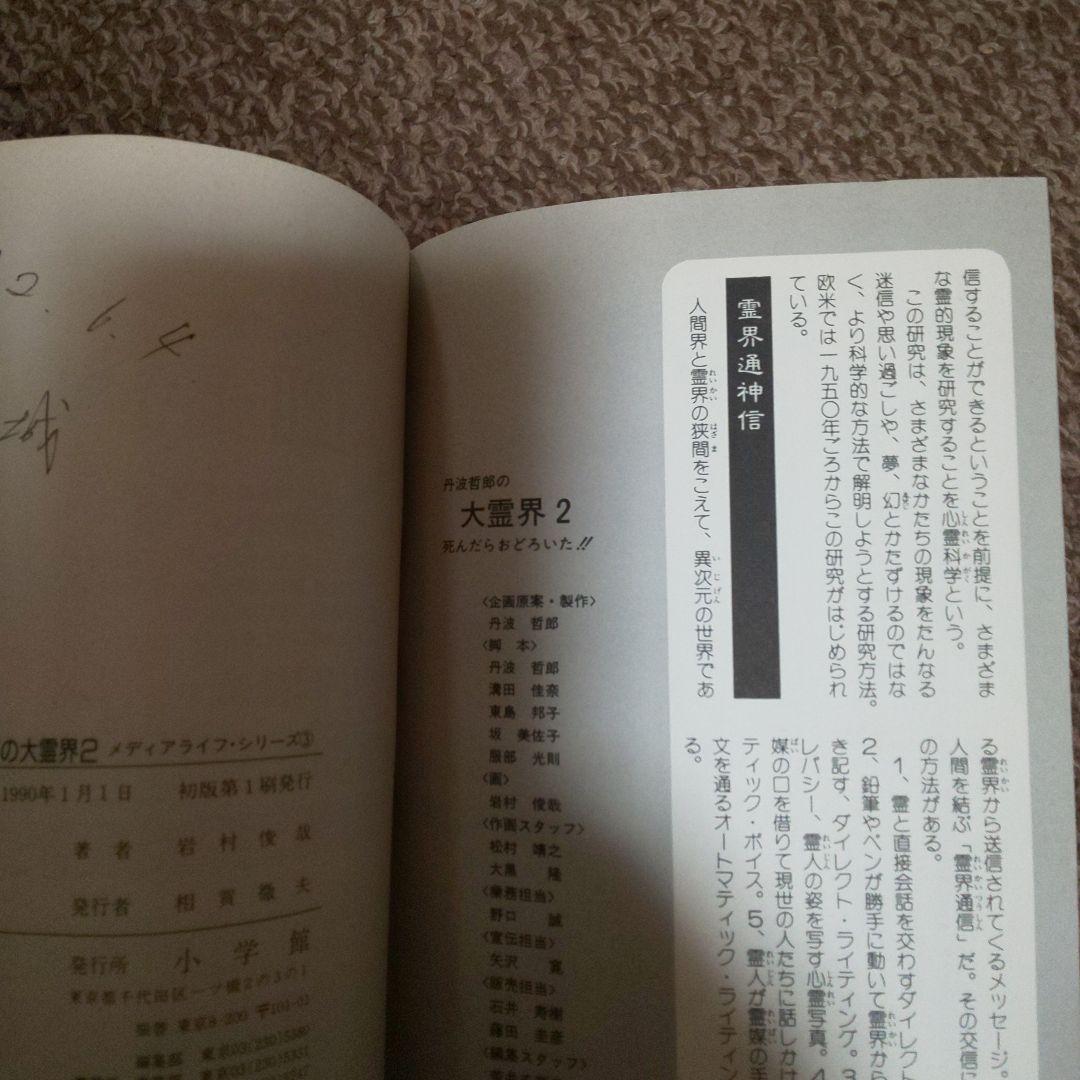 信することができるということを前提に、さまざま
な霊的現象を研究することを心霊科学という。
この研究は、さまざまなかたちの現象をたんなる
迷信や思い過ごしや、夢、幻とかたずけるのではな
く、より科学的な方法で解明しようとする研究方法。
欧米では一九五〇年ごろからこの研究がはじめられ
ている。
霊界通神信
人間界と霊界の狭間をこえて、異次元の世界であ
る霊界から送信されてくるメッセージ。
人間を結ぶ「霊界通信」だ。その交信に
の方法がある。
1、霊と直接会話を交わすダイレクト
2、鉛筆やペンが勝手に動いて霊界から
き記す、ダイレクト・ライティング。3
レパシー、霊人の姿を写す心霊写真。4
媒の口を借りて現世の人たちに話しかけ
ティック・ボイス。5、霊人が霊媒の手
文を通るオートマティック・ライティン
る。
丹波哲郎の
大霊界2
死んだらおどろいた!!
〈企画原案・製作〉
丹波 哲郎
〈脚 本〉
丹波 哲郎
溝田 佳奈
東島 邦子
坂 美佐子
服部 光則
〈画〉
岩村 俊哉
〈作画スタッフ〉
松村 靖之
大黒 隆
〈業務担当〉
野口 誠
〈宣伝担当〉
矢沢 寛
〈販売担当〉
石井 寿樹
藤田 圭彦
〈編集スタッフ〉
2. 6. 4
の大霊界2 メディアライフ・シリーズ③
1990年1月1日 初版第1刷発行
著者 岩村俊哉
発行者 相賀徹夫
発行所 小学館
東京都千代田区一ツ橋2の3の1
振替 東京8-200 〒101-01
編集部 東京03(230)5380
東京03(230)5331